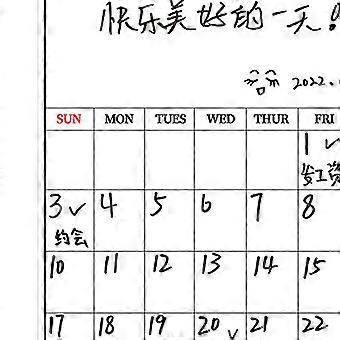 快乐美好的一天!
2022.
SUN MON TUES WED THUR FRI
1 ✓
发工资
3 ✓ 4 5 6 7 8
约会
10 11 12 13 14 15
17 18 19 20 ✓ 21 22